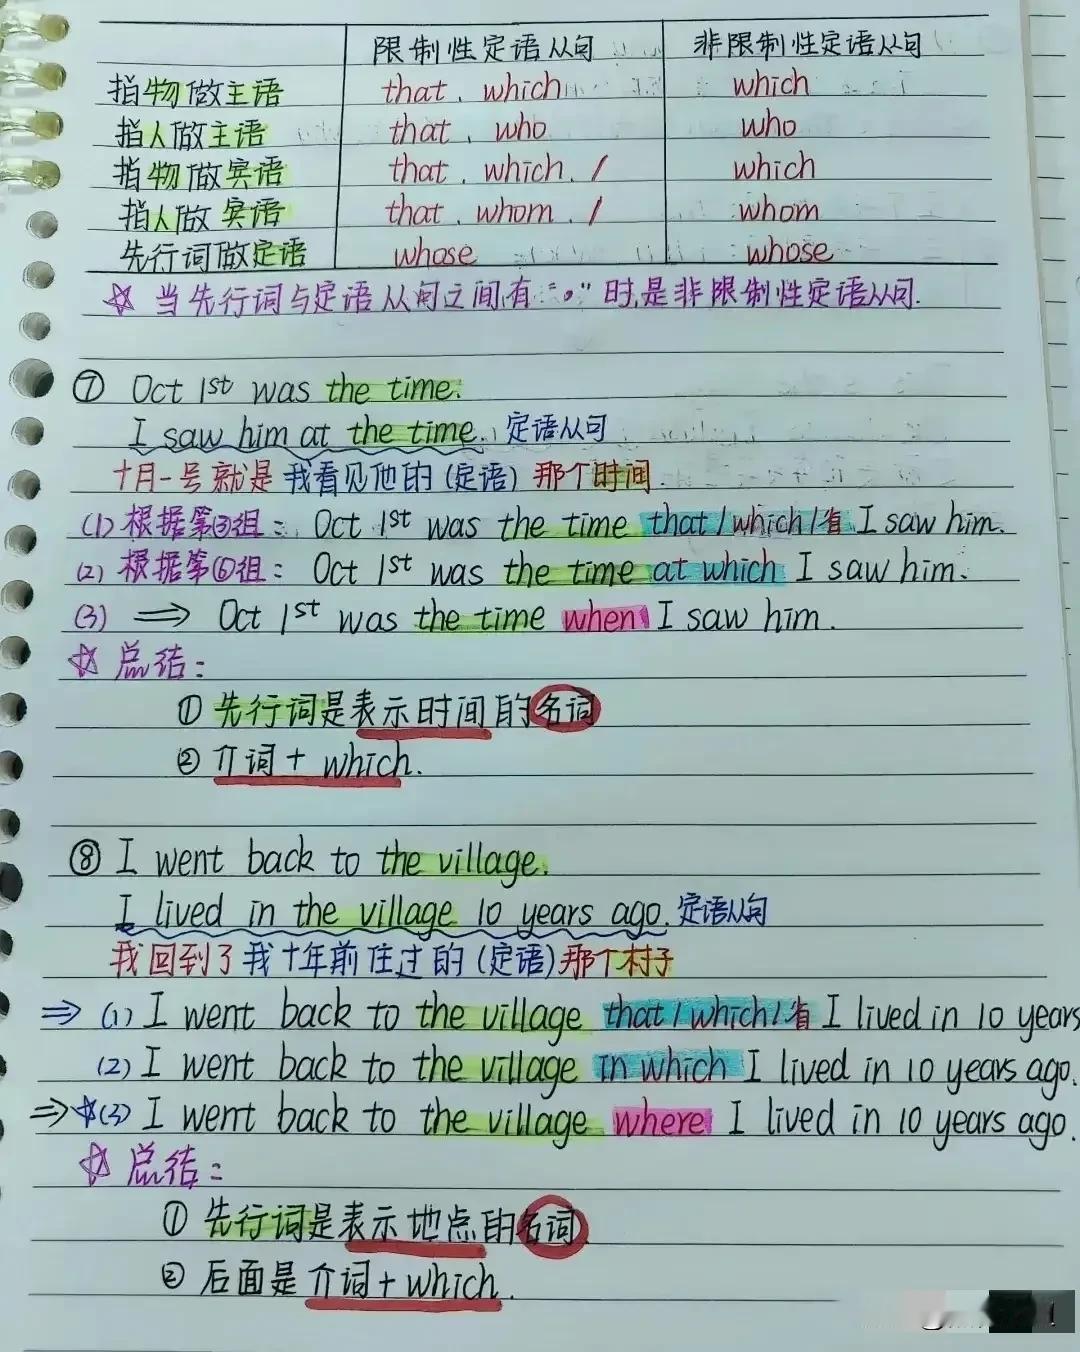 限制性定语从句 非限制性定语从句
指物做主语 that、which which
指人做主语 that、who who
指物做宾语 that、which、/ which
指人做宾语 that、whom、/ whom
先行词做定语 whose whose
☆ 当先行词与定语从句之间有“,”时,是非限制性定语从句.
⑦ Oct 1st was the time.
I saw him at the time. 定语从句
十月一号就是我看见他的(定语)那个时间.
(1) 根据第③组: Oct 1st was the time that/which/省 I saw him.
(2) 根据第⑥组: Oct 1st was the time at which I saw him.
(3) ⇒ Oct 1st was the time when I saw him.
☆ 总结:
① 先行词是表示时间的名词
② 介词+ which.
⑧ I went back to the village.
I lived in the village 10 years ago. 定语从句
我回到了我十年前住过的(定语)那个村子
⇒ (1) I went back to the village that/which/省 I lived in 10 years
(2) I went back to the village in which I lived in 10 years ago.
⇒☆(3) I went back to the village where I lived in 10 years ago.
☆ 总结:
① 先行词是表示地点的名词.
② 后面是介词+which.